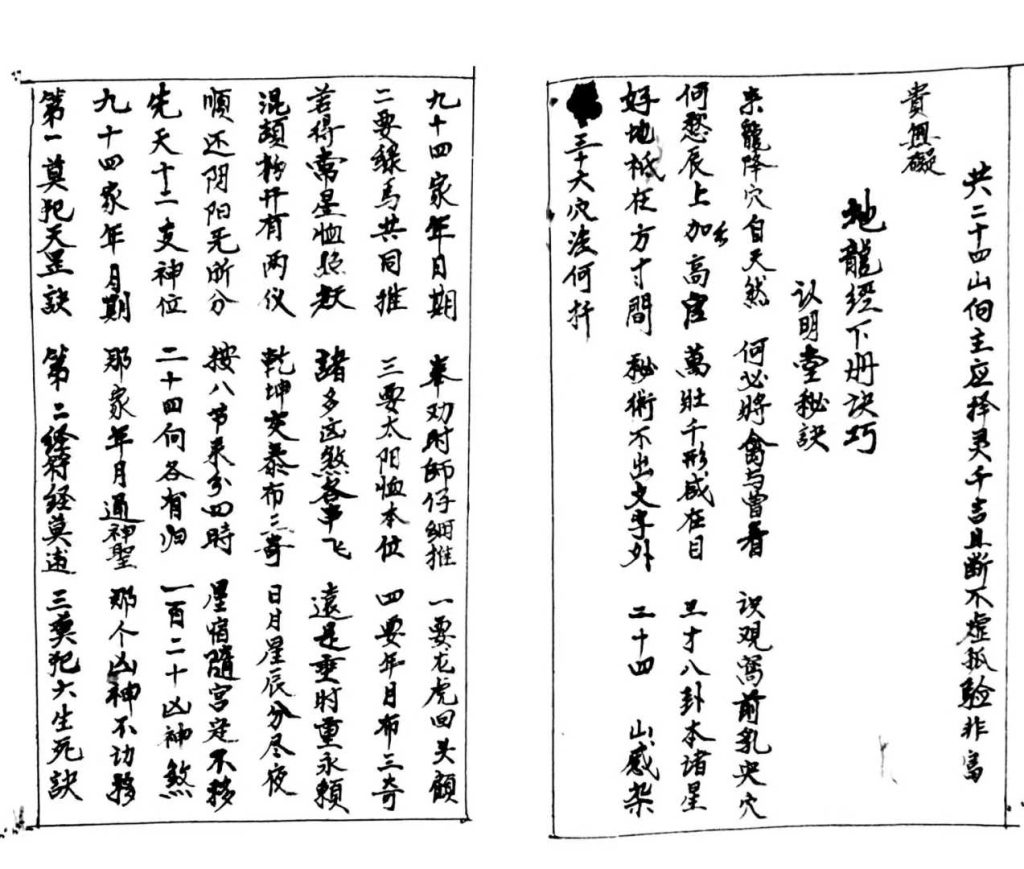 共二十四山向主应择灵千吉且断不虚孤验非富
貴無礙
地龍經下册訣巧
认明堂秘訣
来龍降穴自天然 何必將禽与曾看 识观窩前乳突穴
何愁辰上加高官 萬壯千形咸在目 三才八卦本诸星
好地祗在方寸間 秘術不出文字外 二十四 山感杂
三十六穴法何扦
九十四家年月期 奉劝时師仔細推 一要龙虎回头顧
二要綠馬共同推 三要太阳恤本位 四要年月布三奇
若得 星恤 諸多 煞各串飞 遠是 时重永賴
混 扮开有两仪 乾坤 布三奇 日月星辰分尽夜
順还阴阳无所分 按八节来分四時 星宿隨宮定不移
先天十二支神位 二十四向各有归 一百二十凶神煞
九十四家年月期 那家年月通神聖 那个凶神不功移
第一莫犯天罡訣 第二经符经莫逢 三莫犯六生死訣